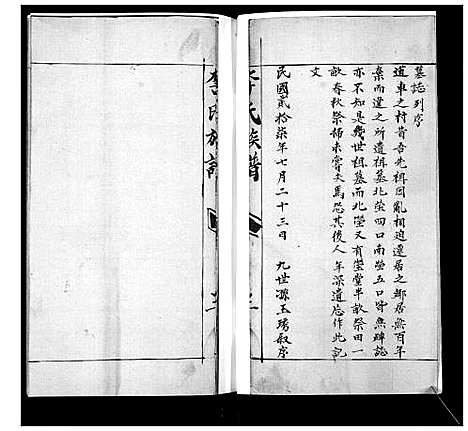 墓誌列序
道車之村昔吾先祖因亂相迫遷居之鄉居無百年
棄而違之所遺祖墓北塋四口南塋五口皆無碑誌
亦不知是幾世祖墓而北塋又有塋堂半畝祭田一
畝春秋祭掃未嘗欠焉恐其後人年深遺忘作此記
文
民國貳拾柒年七月二十三日 九世源玉琇叙序
李氏族譜
李氏族譜